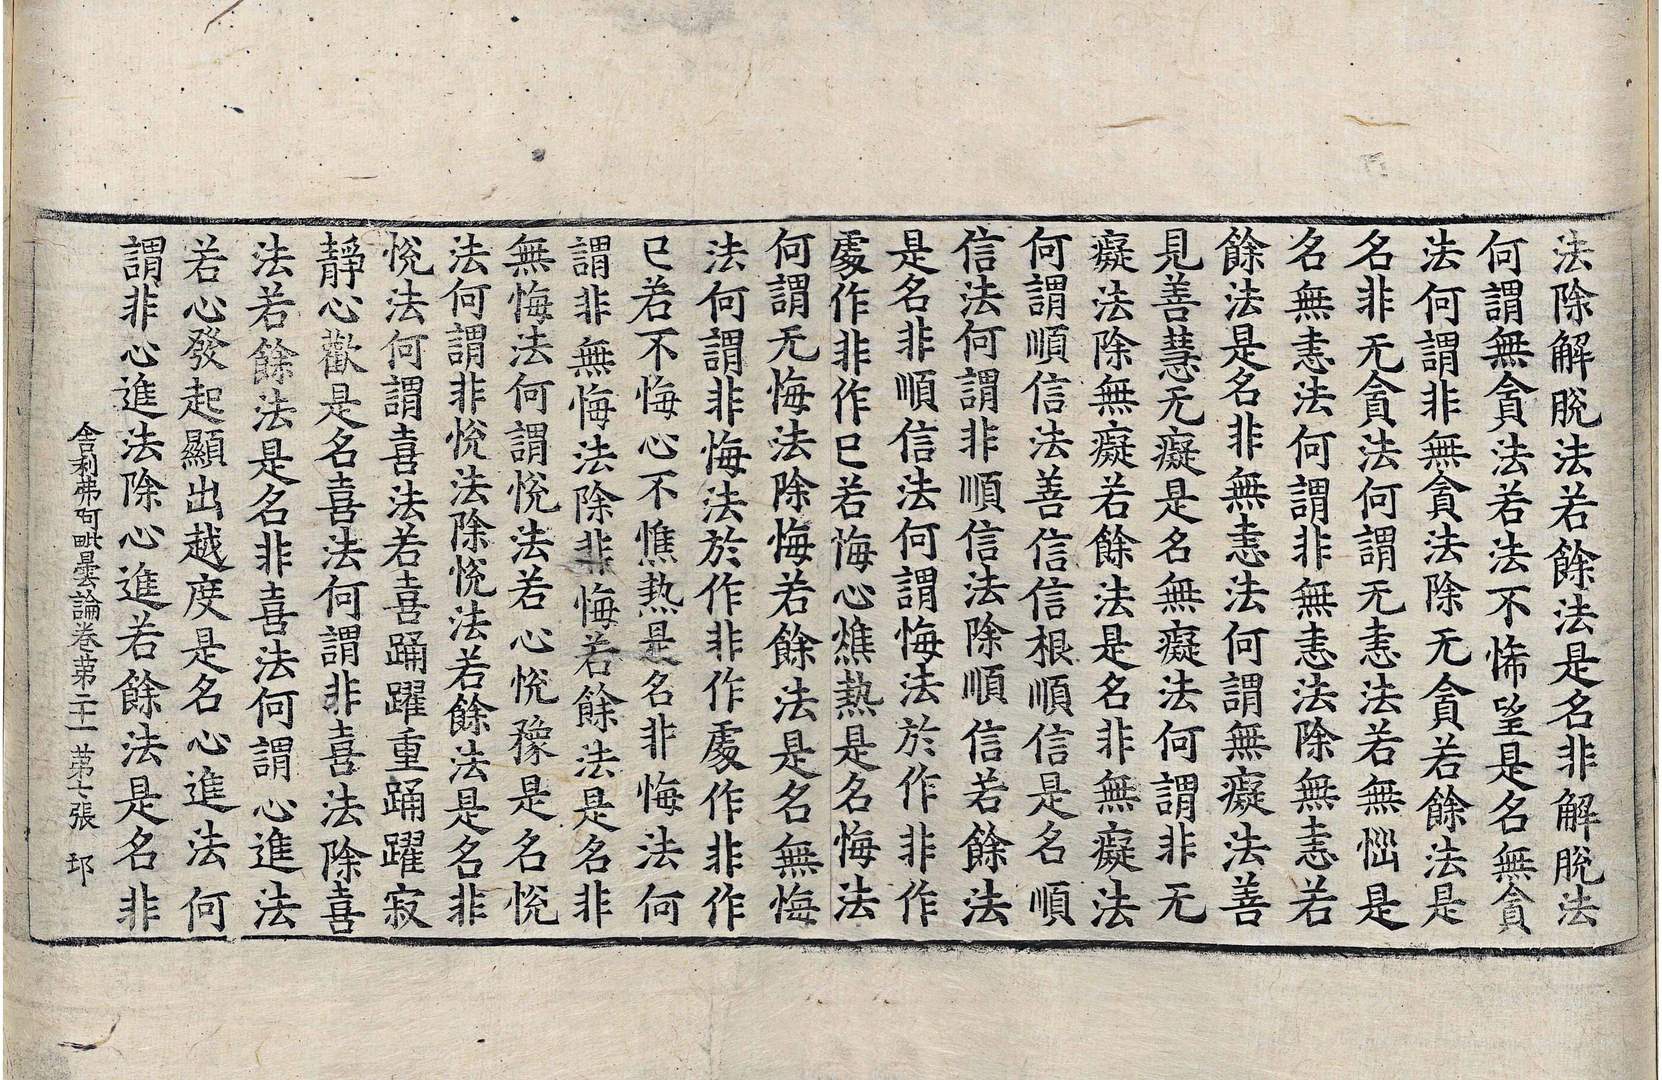 法除解脫法若餘法是名非解脫法
何謂無貪法若法不悕望是名無貪
法何謂非無貪法除无貪若餘法是
名非无貪法何謂无恚法若無惱是
名無恚法何謂非無恚法除無恚若
餘法是名非無恚法何謂無癡法善
見善慧无癡是名無癡法何謂非无
癡法除無癡若餘法是名非無癡法
何謂順信法善信信根順信是名順
信法何謂非順信法除順信若餘法
是名非順信法何謂悔法於作非作
處作非作已若悔心燋熱是名悔法
何謂无悔法除悔若餘法是名無悔
法何謂非悔法於作非作處作非作
已若不悔心不燋熱是名非悔法何
謂非無悔法除非悔若餘法是名非
無悔法何謂悅法若心悅豫是名悅
法何謂非悅法除悅法若餘法是名非
悅法何謂喜法若喜踊躍重踊躍寂
靜心歡是名喜法何謂非喜法除喜
法若餘法是名非喜法何謂心進法
若心發起顯出越度是名心進法何
謂非心進法除心進若餘法是名非
舍利弗阿毗曇論卷第二十一 第七張 邛